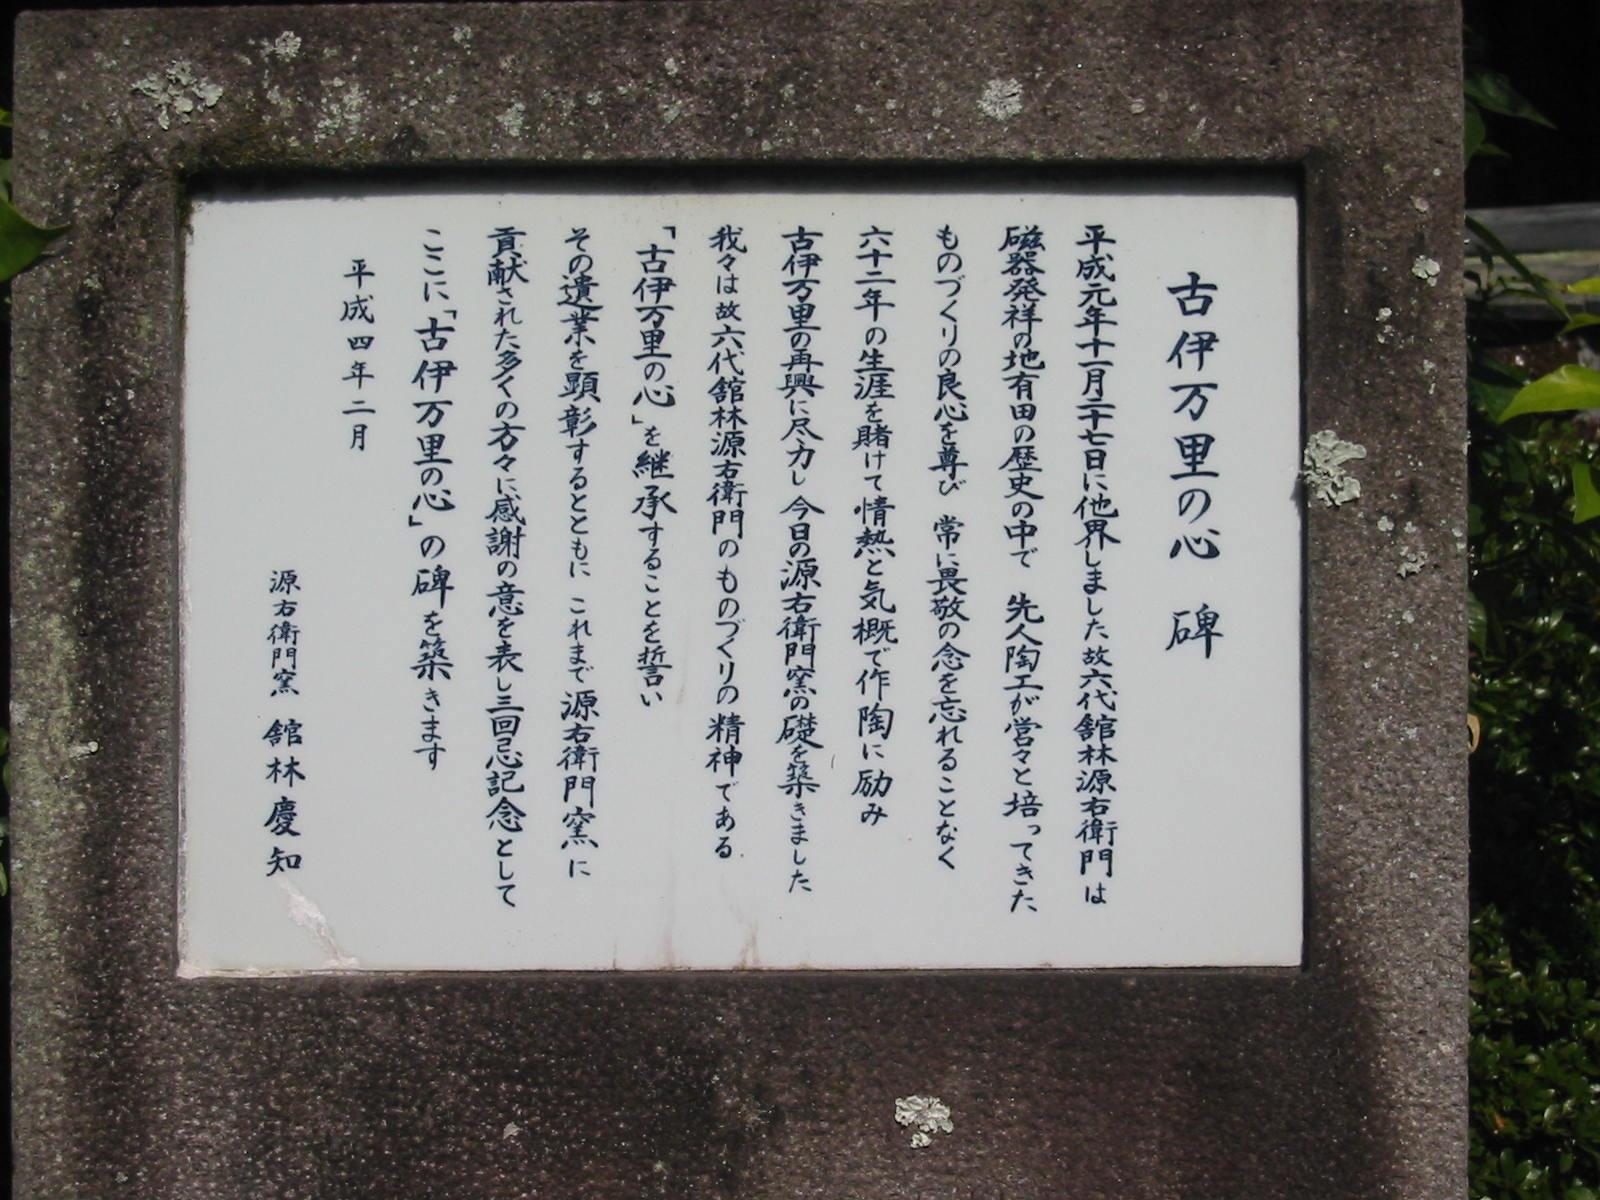 古伊万里の心 碑
平成元年十一月二十七日に他界しました故六代舘林源右衛門は
磁器発祥の地有田の歴史の中で 先人陶工が営々と培ってきた
ものづくりの良心を尊び 常に畏敬の念を忘れることなく
六十二年の生涯を賭けて情熱と気概で作陶に励み
古伊万里の再興に尽力し 今日の源右衛門窯の礎を築きました
我々は故六代舘林源右衛門のものづくりの精神である
「古伊万里の心」を継承することを誓い
その遺業を顕彰するとともに これまで源右衛門窯に
貢献された多くの方々に感謝の意を表し三回忌記念として
ここに「古伊万里の心」の碑を築きます
平成四年二月
源右衛門窯 舘林慶知